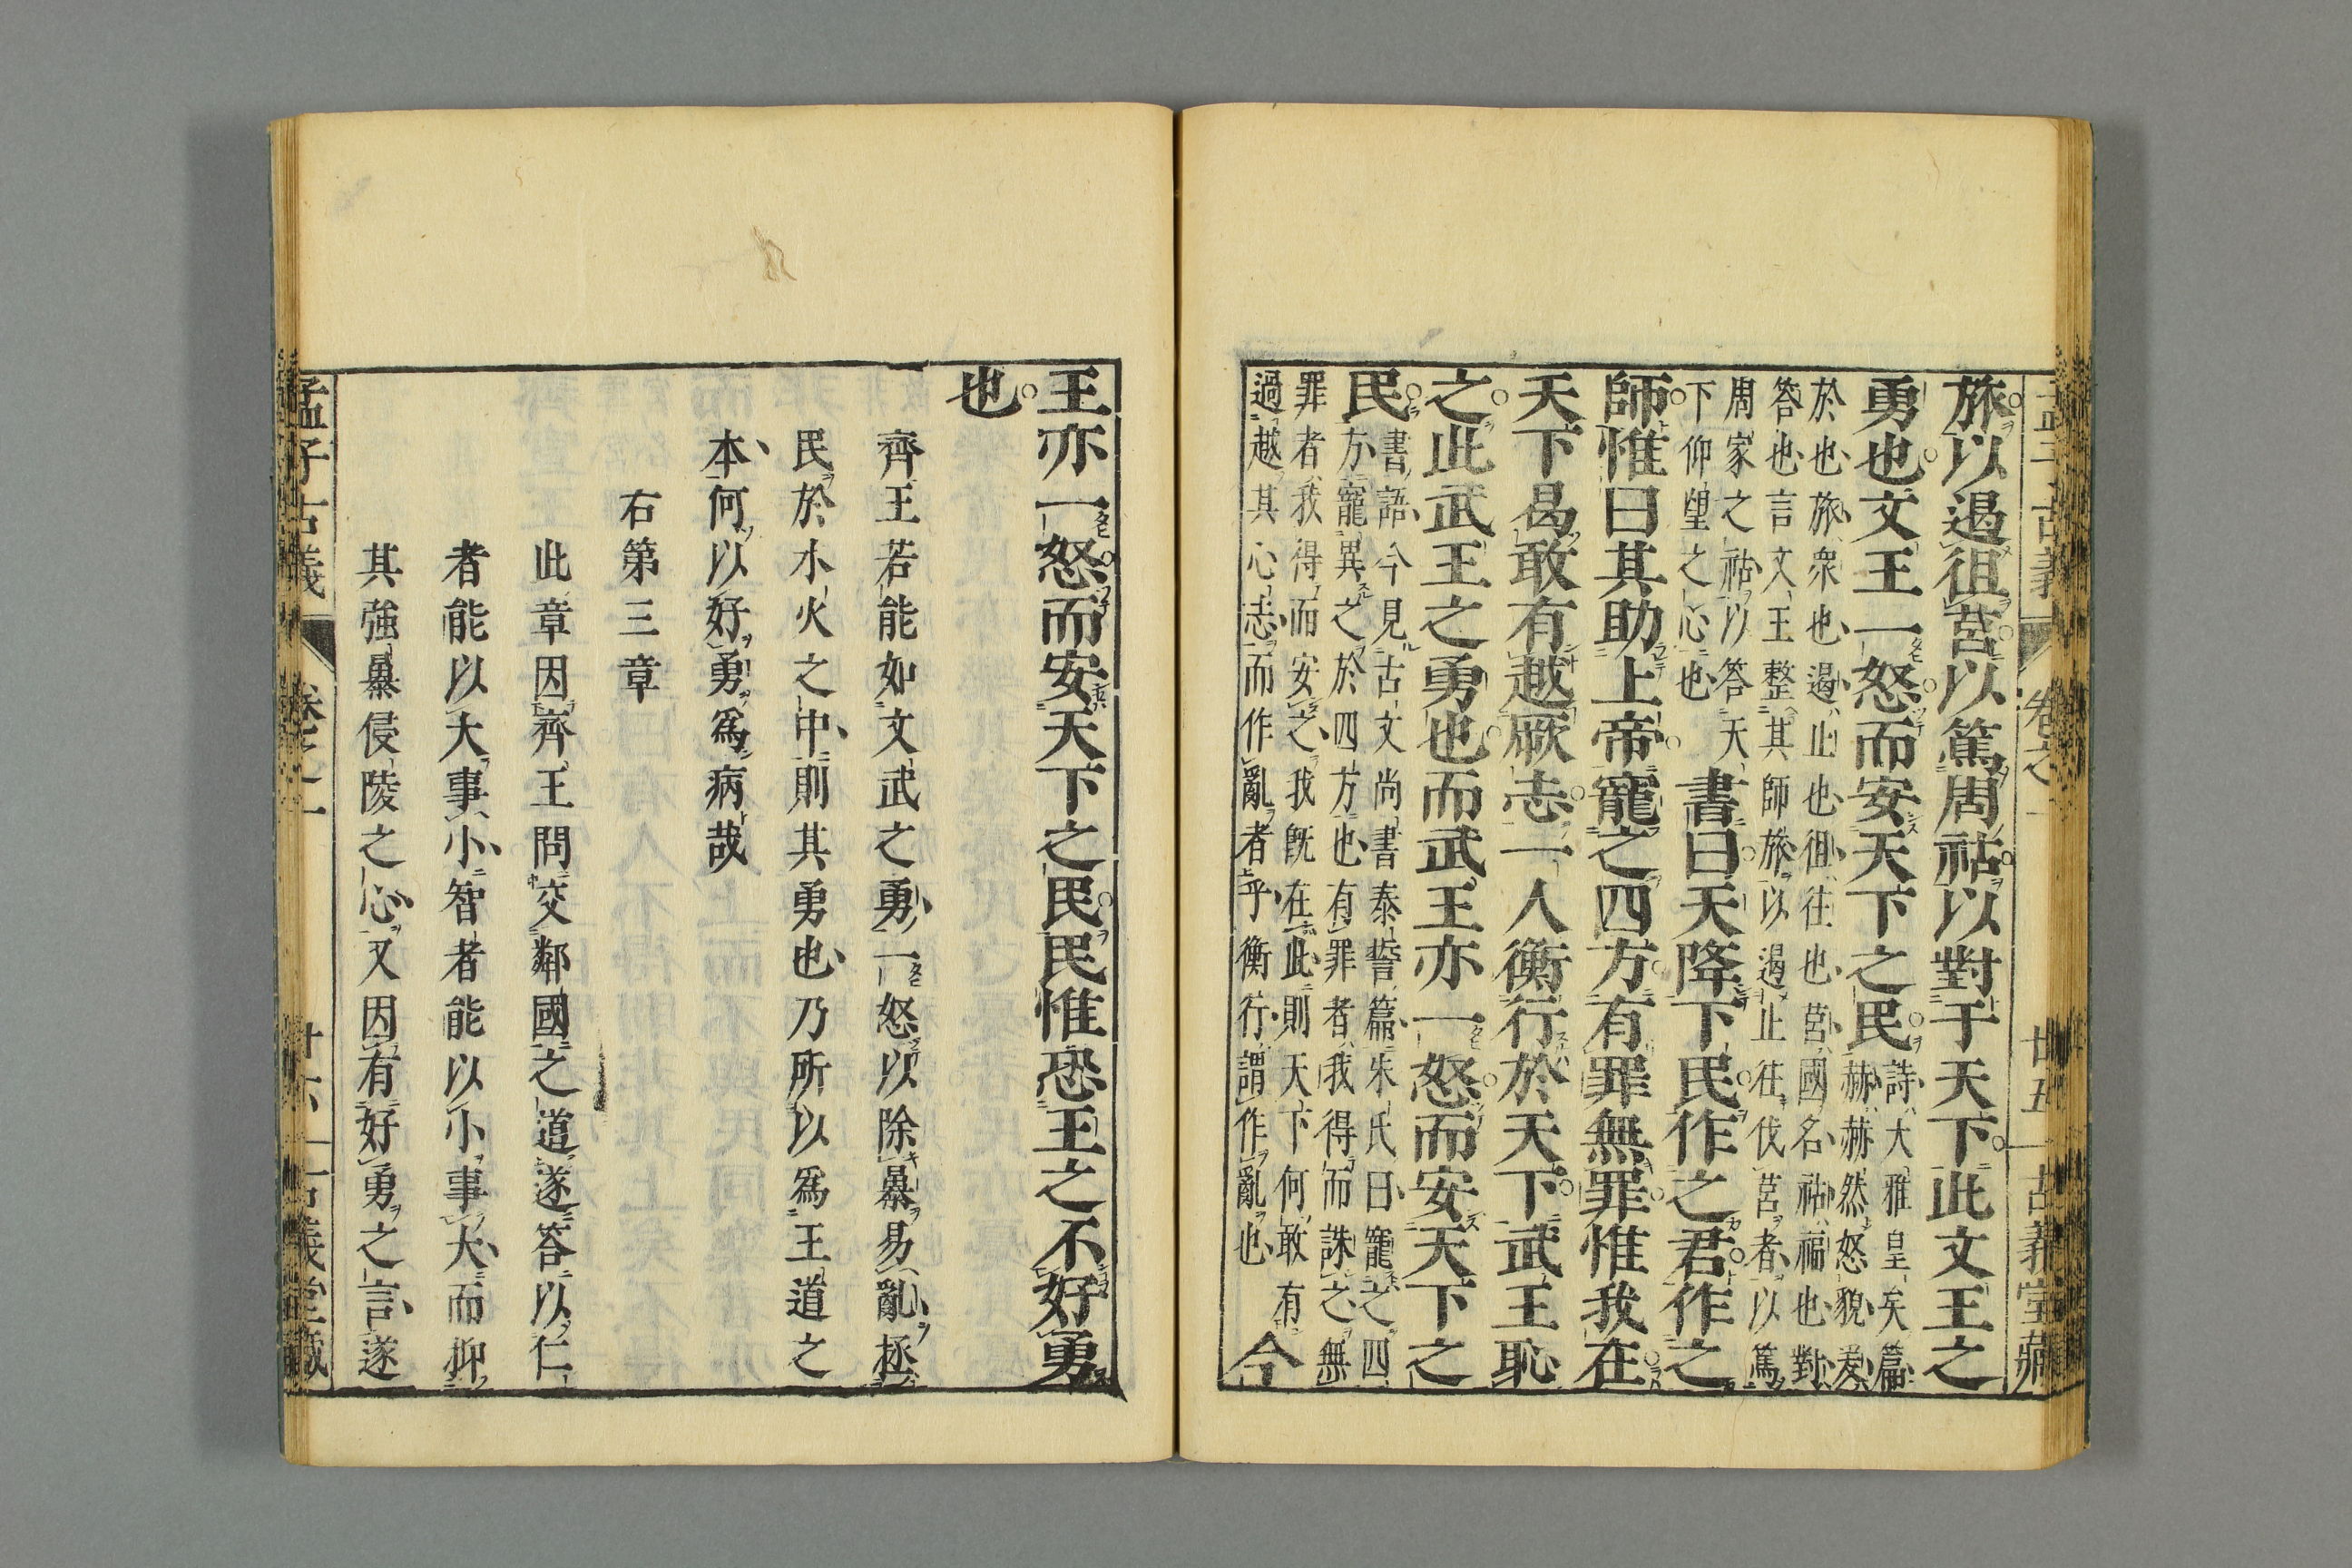 旅以遏徂莒以篤周祜以對于天下此文王之
勇也文王一怒而安天下之民
詩大雅皇矣篇
赫赫然怒貌爰
於也旅衆也遏止也徂往也莒國名祜福也對
答也言文王整其師旅以遏止往伐莒者以篤
周家之祜以答天
下仰望之心也
書曰天降下民作之君作之
師惟曰其助上帝寵之四方有罪無罪惟我在
天下曷敢有越厥志一人衡行於天下武王恥
之此武王之勇也而武王亦一怒而安天下之
民
書語今見古文尚書泰誓篇朱氏曰寵之四
方寵異之於四方也有罪者我得而誅之無
罪者我得而安之我既在此則天下何敢有
過越其心志而作亂者乎衡行謂作亂也
今
古義堂藏
廿五
王亦一怒而安天下之民民惟恐王之不好勇
也
齊王若能如文武之勇一怒以除暴易亂拯
民於水火之中則其勇也乃所以爲王道之
本何以好勇爲病哉
右第三章
此章因齊王問交鄰國之道遂答以仁
者能以大事小智者能以小事大而抑
其強暴侵陵之心又因有好勇之言遂
孟子古義